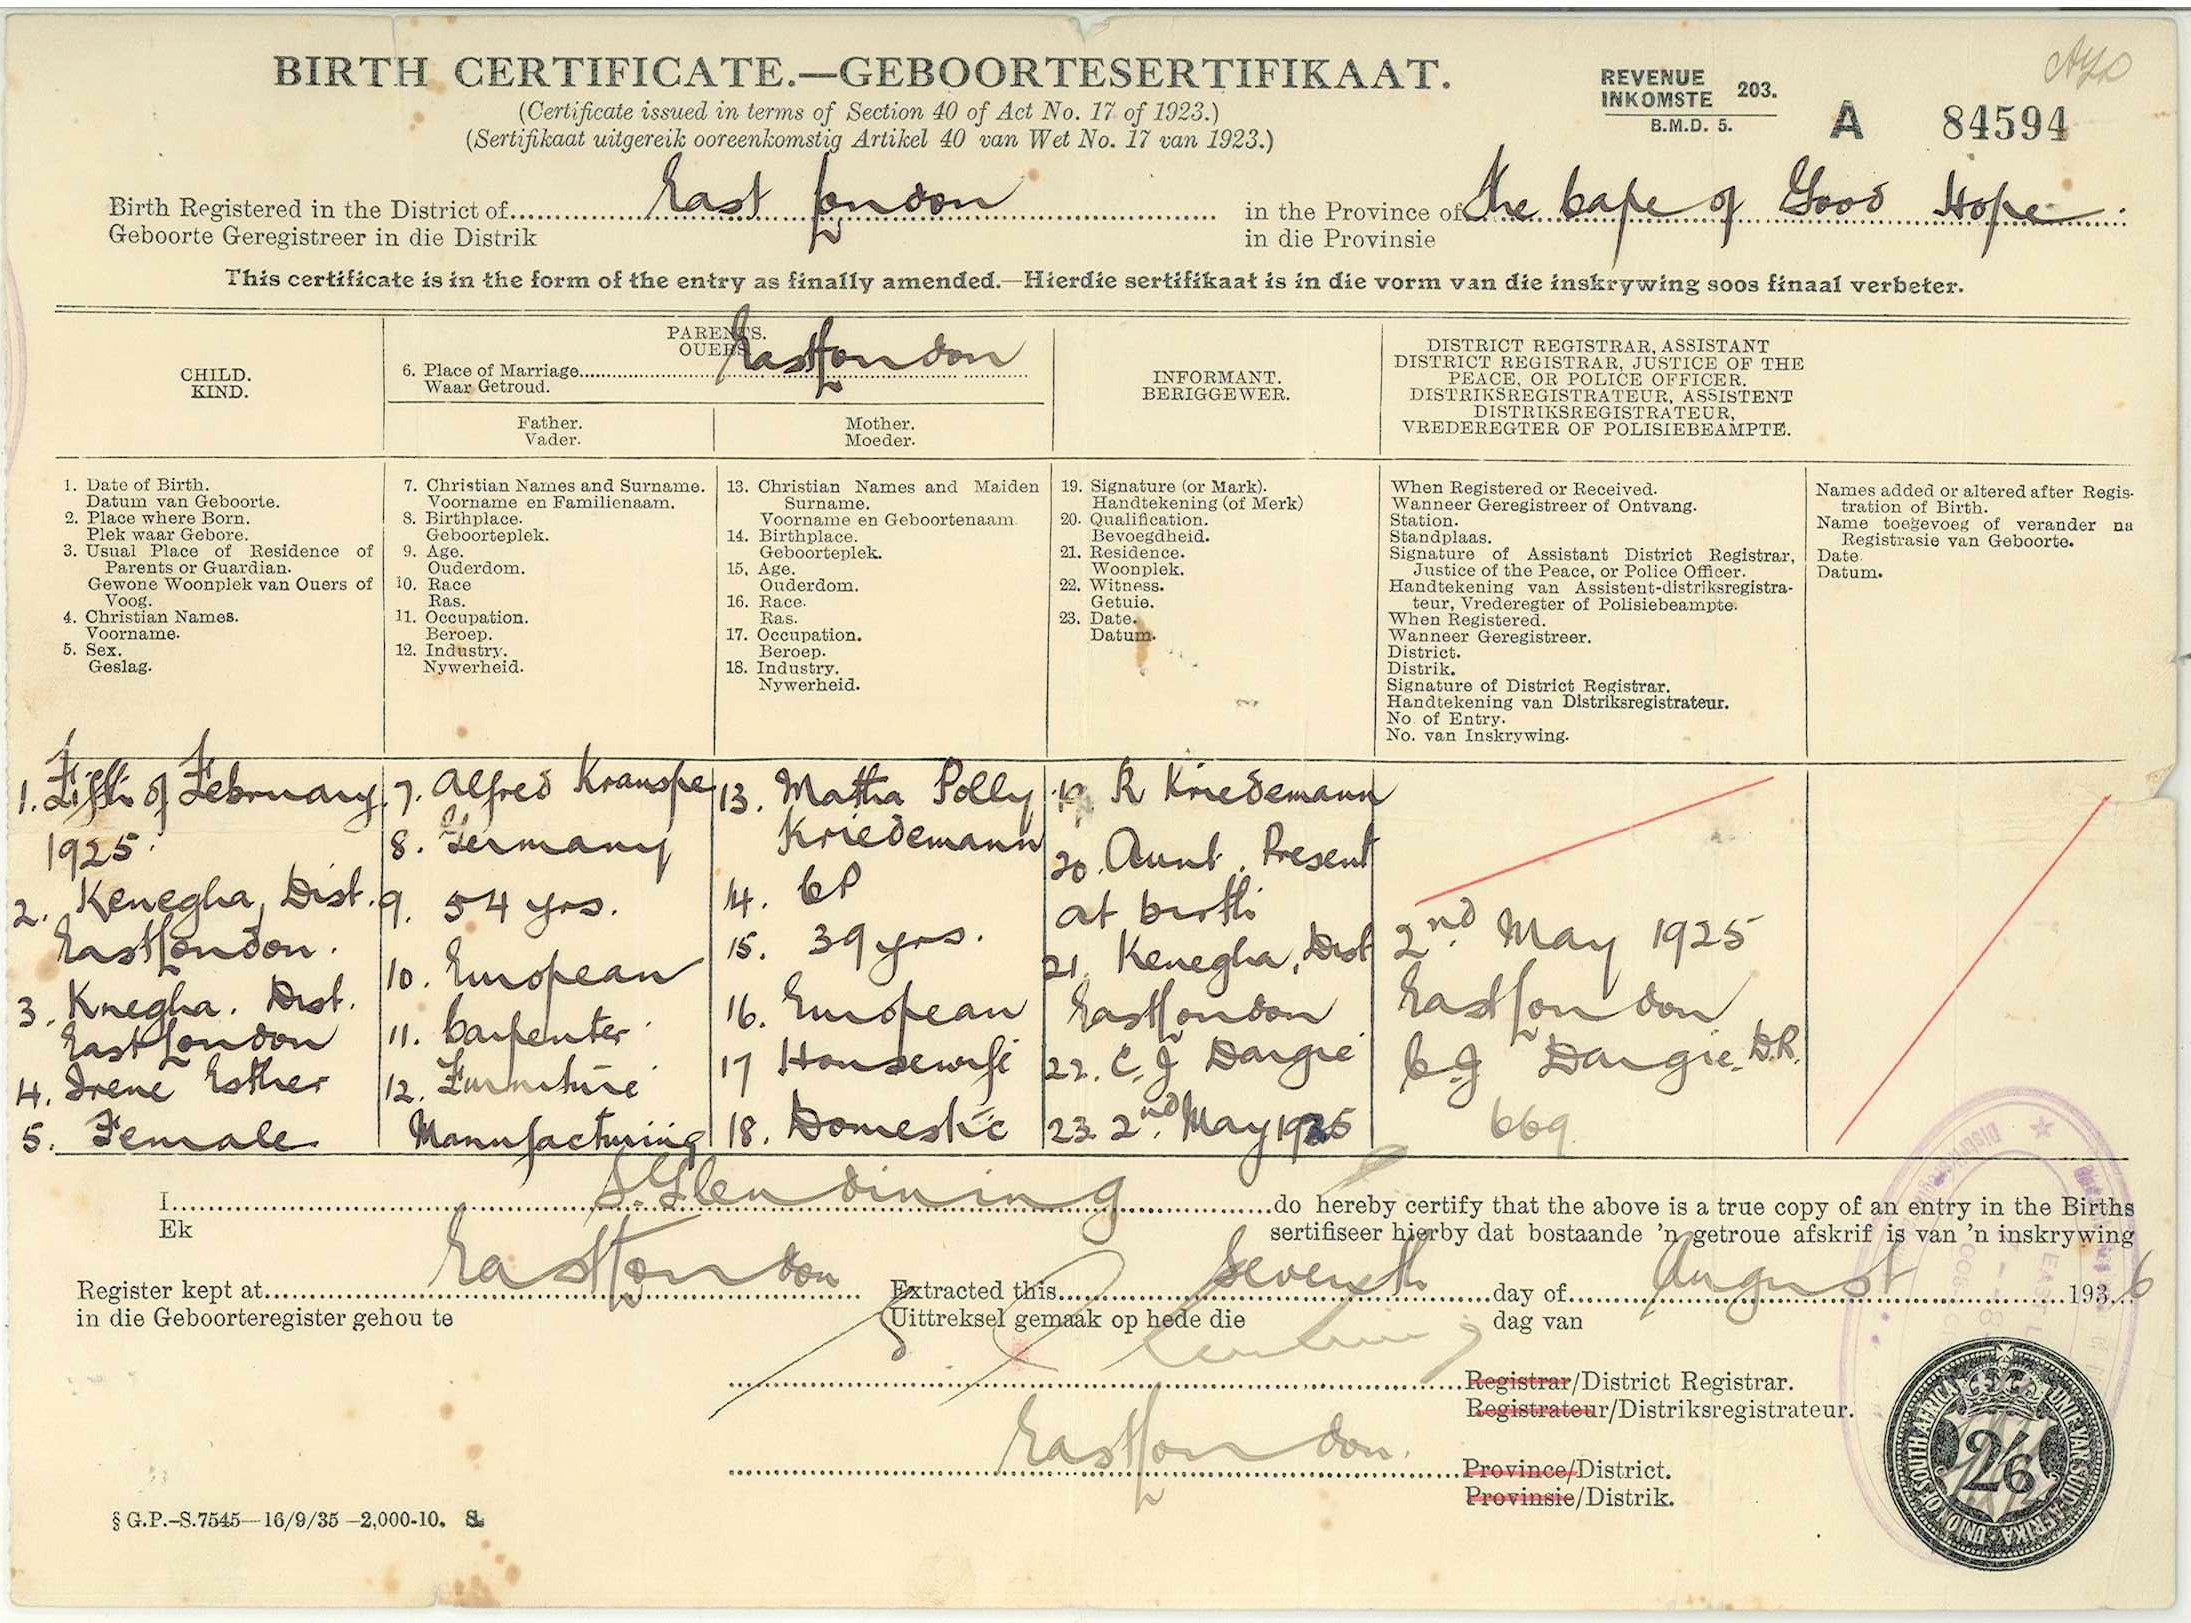 BIRTH CERTIFICATE.—GEBOORTESERTIFIKAAT.
(Certificate issued in terms of Section 40 of Act No. 17 of 1923.)
(Sertifikaat uitgereik ooreenkomstig Artikel 40 van Wet No. 17 van 1923.)
REVENUE
INKOMSTE 203.
B.M.D. 5.
A 84594
Birth Registered in the District of East London in the Province of The Cape of Good Hope
Geboorte Geregistreer in die Distrik in die Provinsie
This certificate is in the form of the entry as finally amended.—Hierdie sertifikaat is in die vorm van die inskrywing soos finaal verbeter.
CHILD.
KIND.
PARENTS.
OUERS
6. Place of Marriage East London
Waar Getroud.
Father.
Vader.
Mother.
Moeder.
INFORMANT.
BERIGGEWER.
DISTRICT REGISTRAR, ASSISTANT
DISTRICT REGISTRAR, JUSTICE OF THE
PEACE, OR POLICE OFFICER.
DISTRIKSREGISTRATEUR, ASSISTENT
DISTRIKSREGISTRATEUR,
VREDEREGTER OF POLISIEBEAMPTE.
1. Date of Birth.
Datum van Geboorte.
2. Place where Born.
Plek waar Gebore.
3. Usual Place of Residence of
Parents or Guardian.
Gewone Woonplek van Ouers of
Voog.
4. Christian Names.
Voorname.
5. Sex.
Geslag.
7. Christian Names and Surname.
Voorname en Familienaam.
8. Birthplace.
Geboorteplek.
9. Age.
Ouderdom.
10. Race
Ras.
11. Occupation.
Beroep.
12. Industry.
Nywerheid.
13. Christian Names and Maiden
Surname.
Voorname en Geboortenaam
14. Birthplace.
Geboorteplek.
15. Age.
Ouderdom.
16. Race.
Ras.
17. Occupation.
Beroep.
18. Industry.
Nywerheid.
19. Signature (or Mark).
Handtekening (of Merk)
20. Qualification.
Bevoegdheid.
21. Residence.
Woonplek.
22. Witness.
Getuie.
23. Date.
Datum.
When Registered or Received.
Wanneer Geregistreer of Ontvang.
Station.
Standplaas.
Signature of Assistant District Registrar,
Justice of the Peace, or Police Officer.
Handtekening van Assistent-distriksregistra-
teur, Vrederegter of Polisiebeampte.
When Registered.
Wanneer Geregistreer.
District.
Distrik.
Signature of District Registrar.
Handtekening van Distriksregistrateur.
No. of Entry.
No. van Inskrywing.
Names added or altered after Regis-
tration of Birth.
Name toegevoeg of verander na
Registrasie van Geboorte.
Date.
Datum.
1. Fifth of February
1925.
2. Kenegha, Dist.
East London.
3. Knegha. Dist.
East London
4. Irene Esther
5. Female
7. Alfred Kranspe
8. Germany
9. 54 yrs.
10. European
11. Carpenter
12. Furniture
Manufacturing
13. Matha Polly
Kriedemann
14. CP
15. 39 yrs.
16. European
17 Housewife
18. Domestic
19. R Kriedemann
20. Aunt. Present
at birth
21. Kenegha, Dist
East London
22. C. J Dargie
23. 2nd. May 1925
2nd. May 1925
East London
C. J Dargie. D.R.
669
I S. Glendining do hereby certify that the above is a true copy of an entry in the Births
Ek sertifiseer hierby dat bostaande 'n getroue afskrif is van 'n inskrywing
Register kept at East London Extracted this Seventh day of August 1936
in die Geboorteregister gehou te Uittreksel gemaak op hede die dag van
Registrar/District Registrar.
Registrateur/Distriksregistrateur.
East London. Province/District.
Provinsie/Distrik.
§ G.P.–S.7545—16/9/35 –2,000-10. S.
UNION OF SOUTH AFRICA UNIE VAN SUID-AFRIKA
2/6